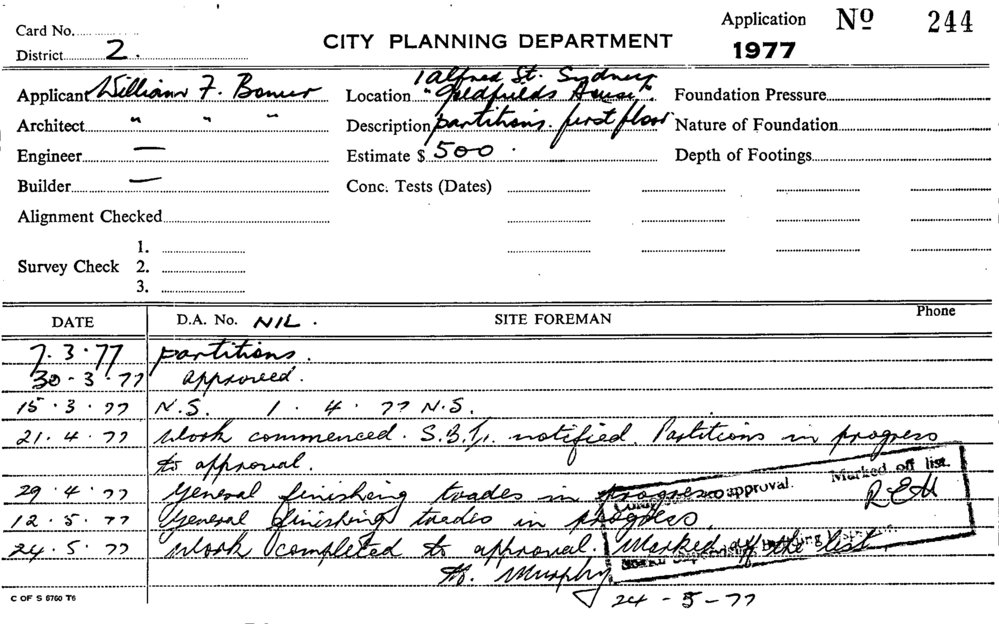 Card No.
District 2.
CITY PLANNING DEPARTMENT
Application Nº 244
1977
Applicant William F. Location 1 Alfred St. Sydney "Goldfields House". Foundation Pressure
Architect " " " Description partitions. first floor Nature of Foundation
Engineer — Estimate $ 500. Depth of Footings
Builder — Conc. Tests (Dates)
Alignment Checked
1.
Survey Check 2.
3.
DATE D.A. No. NIL. SITE FOREMAN Phone
7.3.77 partitions.
30-3.77 approved.
15.3.77 N.S. 1.4.77 N.S.
21.4.77 Work commenced. notified. Partitions in progress
to approval.
29.4.77 General finishing trades in progress
approval. Marked off list.
REM
12.5.77 General finishing trades in progress.
24.5.77 Work completed to approval. Marked off the list.
Murphy
24-5-77
C OF S 5760 T6